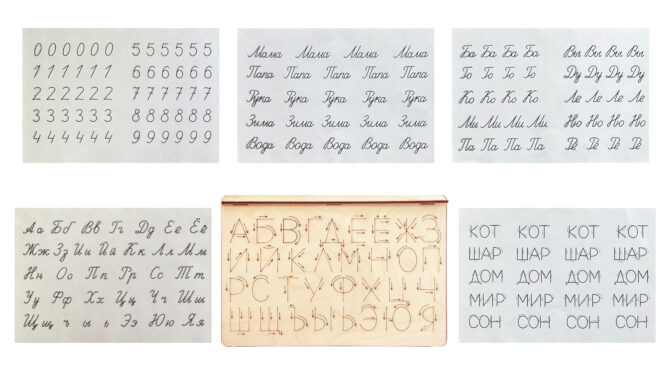 0 0 0 0 0 0 5 5 5 5 5 5
1 1 1 1 1 1 6 6 6 6 6 6
2 2 2 2 2 2 7 7 7 7 7 7
3 3 3 3 3 3 8 8 8 8 8 8
4 4 4 4 4 4 9 9 9 9 9 9
Мама Мама Мама Мама
Папа Папа Папа Папа
Рука Рука Рука Рука
Зима Зима Зима Зима
Вода Вода Вода Вода
Ба Ба Ба Ба Вы Вы Вы Вы
Го Го Го Го Ду Ду Ду Ду
Ко Ко Ко Ко Ле Ле Ле Ле
Ми Ми Ми Ми Ню Ню Ню Ню
Па Па Па Па Тё Тё Тё Тё
Аа Бб Вв Гг Дд Ее Ёё
Жж Зз Ии Йй Кк Лл Мм
Нн Оо Пп Рр Сс Тт
Уу Фф Хх Цц Чч Шш
Щщ ъ ы ь Ээ Юю Яя
АБВГДЕЁЖЗ
ИЙКЛМНОП
РСТУФХЦЧ
ШЩЪЫЬЭЮЯ
КОТ КОТ КОТ КОТ
ШАР ШАР ШАР ШАР
ДОМ ДОМ ДОМ ДОМ
МИР МИР МИР МИР
СОН СОН СОН СОН